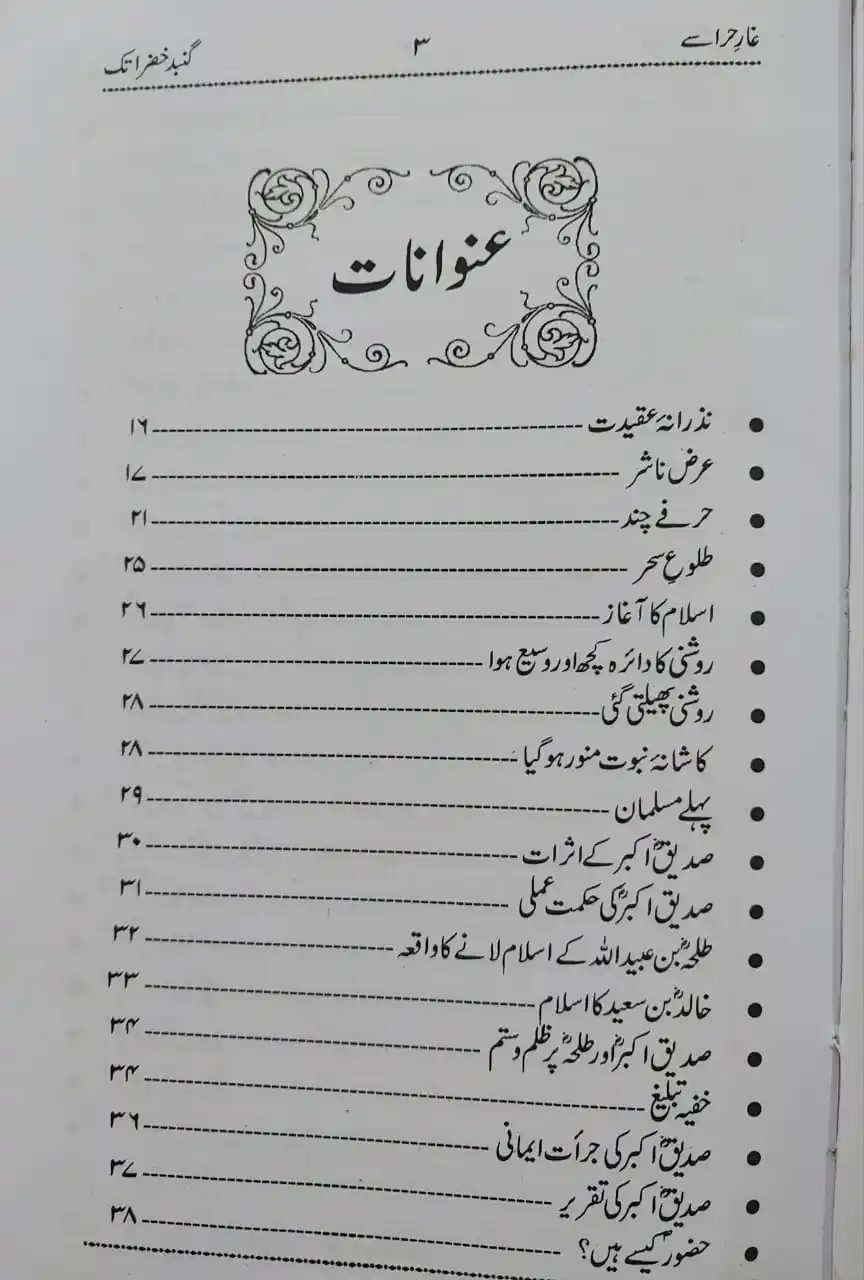 غارِ حرا سے ۳ گنبد خضرا تک
عنوانات
• نذرانۂ عقیدت ۱۶
• عرض ناشر ۱۷
• حرفے چند ۲۱
• طلوعِ سحر ۲۵
• اسلام کا آغاز ۲۶
• روشنی کا دائرہ کچھ اور وسیع ہوا ۲۷
• روشنی پھیلتی گئی ۲۸
• کاشانۂ نبوت منور ہو گیا ۲۸
• پہلے مسلمان ۲۹
• صدیقؓ اکبر کے اثرات ۳۰
• صدیق اکبرؓ کی حکمت عملی ۳۱
• طلحہؓ بن عبید اللہ کے اسلام لانے کا واقعہ ۳۲
• خالدؓ بن سعید کا اسلام ۳۳
• صدیق اکبرؓ اور طلحہؓ پر ظلم و ستم ۳۴
• خفیہ تبلیغ ۳۴
• صدیقؓ اکبر کی جرأت ایمانی ۳۶
• صدیقؓ اکبر کی تقریر ۳۷
• حضورؐ کیسے ہیں؟ ۳۸